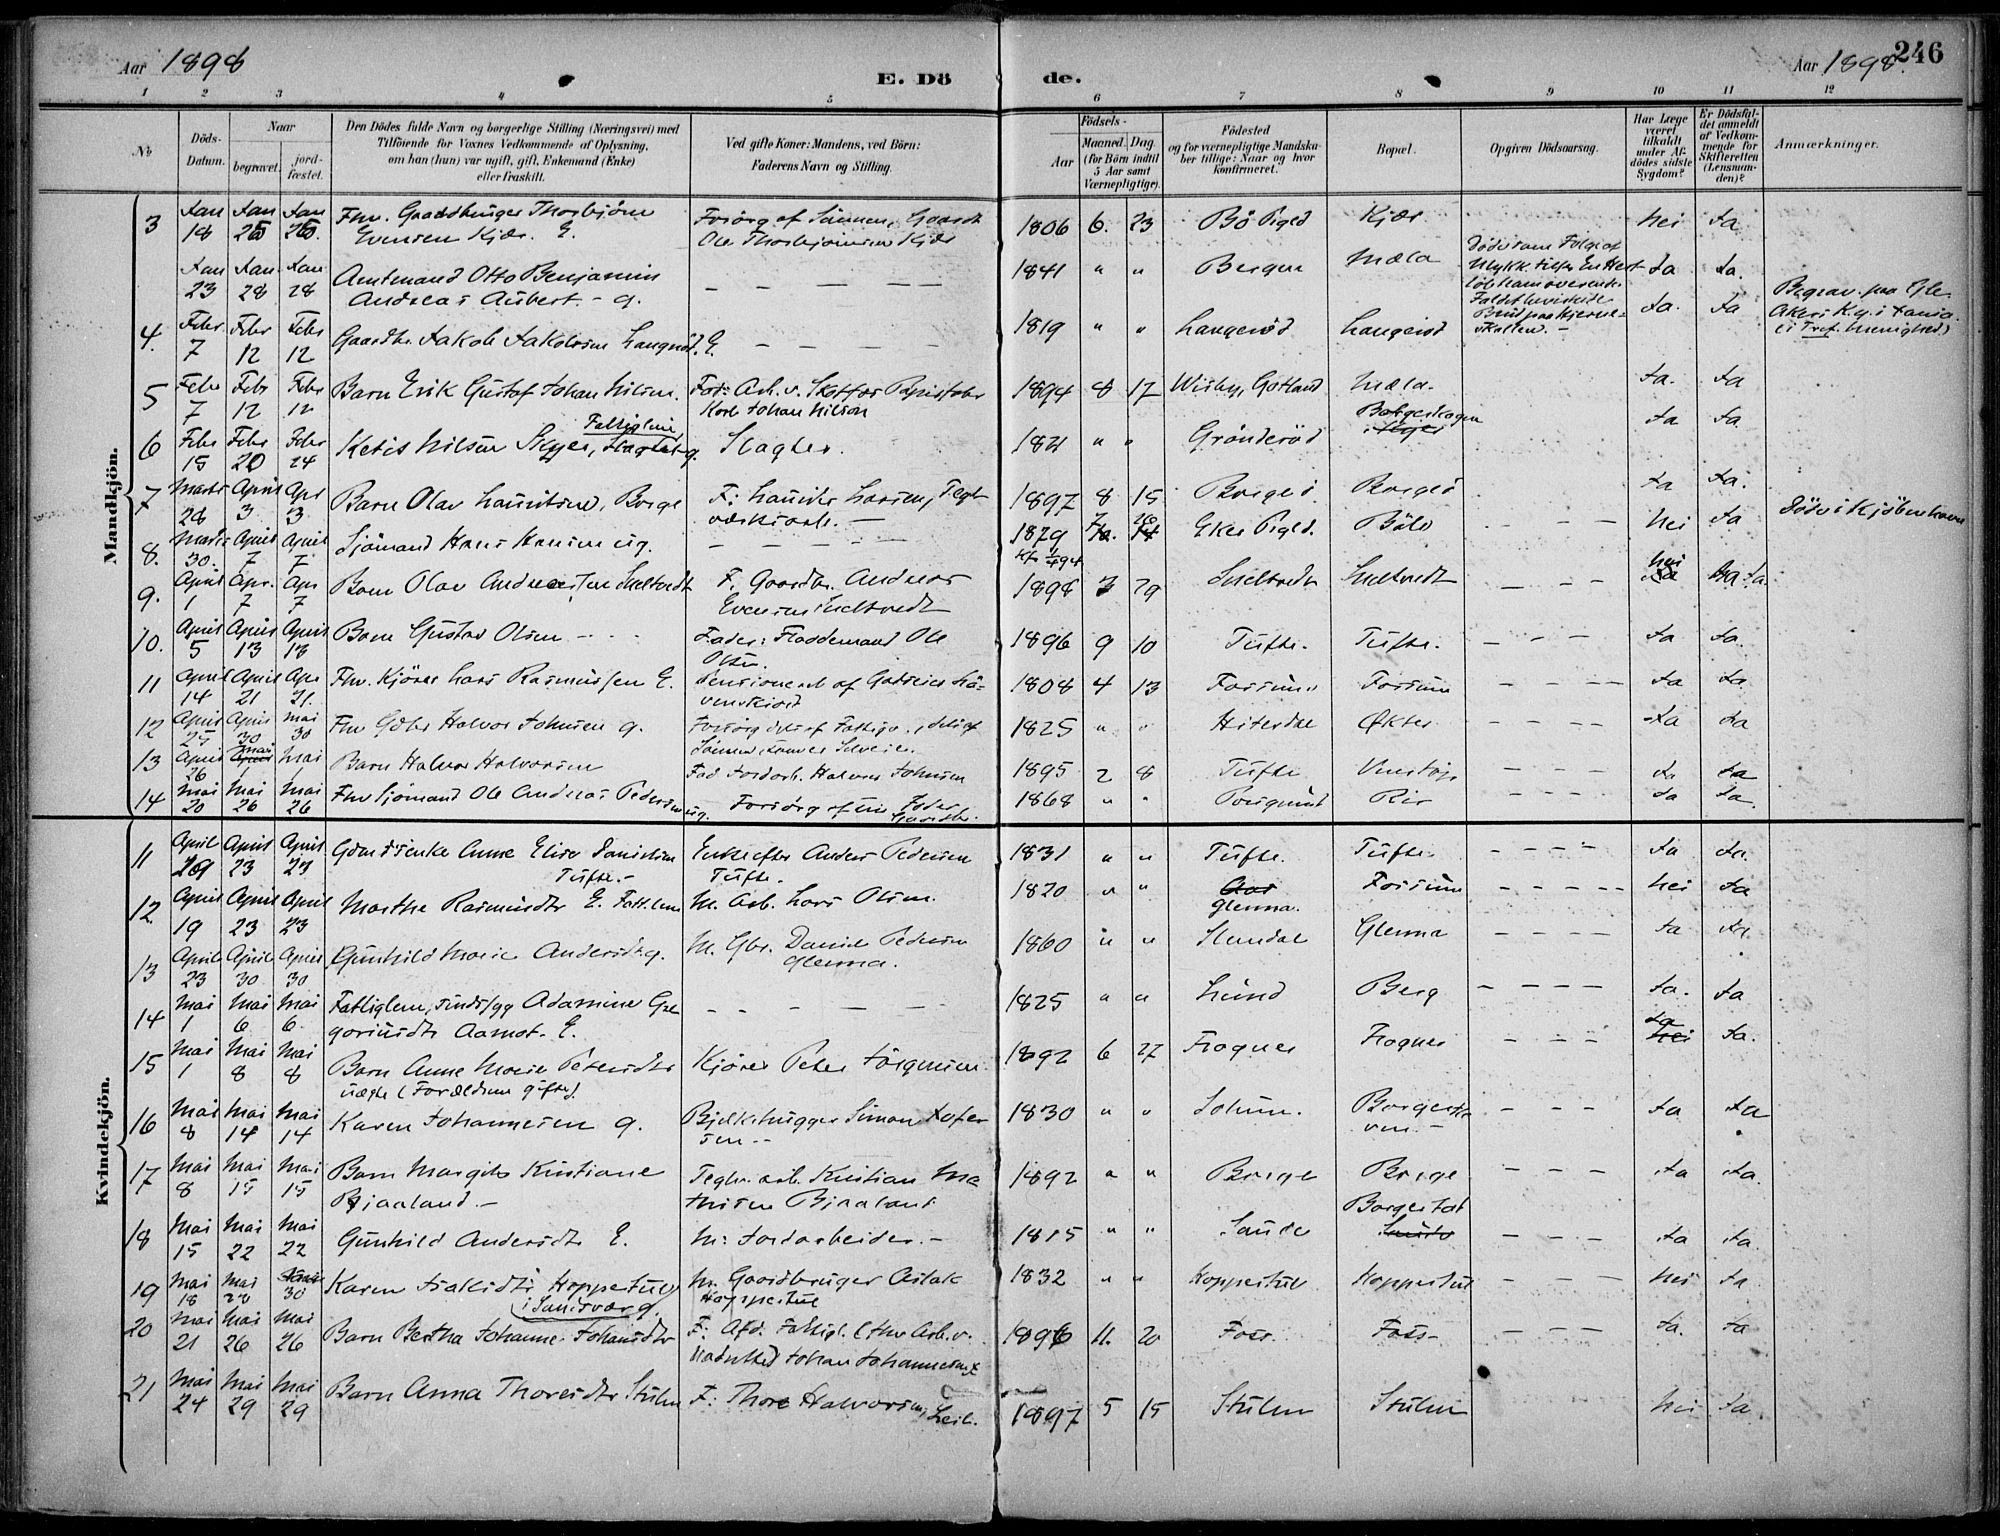 Aar 1898
E. Dö de.
Aar 1898.
246
1 2 3 4 5 6 7 8 9 10 11 12
No
Döds-Datum.
Naar
begravet.
jord-fæstet.
Den Dödes fulde Navn og borgerlige Stilling (Næringsvei) med
Tilföiende for Voxnes Vedkommende af Oplysning,
om han (hun) var ugift, gift, Enkemand (Enke)
eller fraskilt.
Ved gifte Koner: Mandens, ved Börn:
Faderens Navn og Stilling.
Födsels-
Aar
Maaned. Dag
(for Börn indtil
5 Aar samt
Værnepligtige).
Födested
og for værnepligtige Mandska-
ber tillige: Naar og hvor
konfirmeret.
Bopæl.
Opgiven Dödsaarsag.
Har Læge
været
tilkaldt
under Af-
dödes sidste
Sygdom?
Er Dödsfal-
det anmeldt
af Vedkom-
mende for
Skifteretten
(Lensman-
den)?
Anmærkninger.
Mandkjön.
3 Jan 18 Jan 26 Jan 26. Fhv. Gaardbruger Thorbjörn Evensen Kjær. E. Forsörg af Sönnen, Gaardb Ole Thorbjörnsen Kjær 1806 6. 23 Bö Prgd Kjær Nei Ja
Jan 23 Jan 28 Jan 28 Amtmand Otto Benjamin Andreas Aubert. - g. - - - - - 1841 " " Bergen Mæla Döde som Fölge af Ja Ja. Begrav. paa Gle
4. Febr. 7 Febr 12 Febr 12 Gaardbr. Jakob Jakobsen Langeröd. E. - - - 1819 " " Langeröd Langeröd Ja. Ja
5 Febr 7 Febr 12 Febr 12 Barn Erik Gustaf Johan Nilsen. Fad: Arb. v. Skotfos Papirfabr Karl Johan Nilson 1894 8 17 Wisby, Gotland Mæla. Ja. Ja
6 Febr 15 Febr 20 Febr 24 Ketil Nilsen Fattiglem, g. Slagter. 1821 " " Grönderöd Ja Ja
7 Marts 28 April 3 Apr 3 Barn Olav Lauritsen, Borge F: Laurits Larsen, Tegl- 1897 8 15 Ja Ja.
8. Marts 30. April 7 April 7 Sjömand Hans Hansen ug. - - - 1879 Eker Prgld. Böle - - - Nei Ja Döde i Kjöbenhavn
9. April 1 Apr. 7 Apr 7 Barn Olav Andreassen Sneltvedt F. Gaardbr. Andreas Evensen Sneltvedt 1898 3 29 Sneltvedt Sneltvedt - - - Nei Ja.
10. April 5 April 13 April 13 Barn Gustav Olsen - - - Fader: Flöddemand Ole Olsen. 1896 9 10 Tufte. Tufte. - - - - Ja Ja.
11 April 14 April 21 Apr 21. Fhv. Kjörer Lars Rasmussen E. 1808 4 13 Fossum " Fossum - - - - Ja Ja
12 April 25 April 30 Mai 30 Fhv Gbr Halvor Johnsen g. 1825 " " Hiterdal Økter. - - - - Ja Ja
13 April 26 Mai 1 Mai 1 Barn Halvor Halvorsen Fad Jordarb. Halvor Johnsen 1895 2 8 Tufte - - - - Ja Ja
14 Mai 20 Mai 26 Mai 26 Fhv Sjömand Ole Andreas Pedersen ug. Forsörg af sin Fader Gaardbr. 1868 " " Porsgrund - - - - Ja Ja.
Kvindekjön.
11 April 20 April 23 April 23 Gaardenke Anne Elise Danielsen Tufte. - Enke efter Anders Pedersen Tufte. 1831 " " Tufte. Tufte. - - - - Ja Ja.
12. April 19 April 23 April 23 Marthe Rasmusdtr E. Fattlem M. Arb. Lars Olsen. 1820 " " Aas Glenna. Fossum - - - - - Nei Ja
13 April 23 April 30 April 30 Gunhild Marie Andersdtr g. M. Gbr. Daniel Pedersen Glenna. 1860 " " Slemdal Glenna - - - - Ja Ja.
14 Mai 1 Mai 6 Mai 6. Fattiglem, sindssyg Adamine Gre goriusdtr Aamot. E. - - - - 1825 " " Lund Berg - - - - Ja. Ja
15 Mai 1 Mai 8 Mai 8 Barn Anne Marie Petersdtr uægte (Forældrene gifte). Kjörer Peter Jörgensen 1892 6 27 Frogner Frogner - - - Ja Nei Ja.
16 Mai 8 Mai 14 Mai 14 Karen Johannesen g. Bjelkehugger Simon sen - 1830 " " Solum. - - - - Ja Ja
17 Mai 8 Mai 15 Mai 15 Barn Margit Kristiane Bjaaland - Teglv. arb. Kristian Ma thisen Bjaaland 1892 " " Borge Borge - - - Ja Ja.
18 Mai 15 Mai 22 Mai 22 Gunhild Andersdtr E. M: Jordarbeider. - 1815 " " Sande Borgestad - - - - Ja Ja.
19 Mai 18 Mai Mai 30 Karen Isaksdtr Hoppestul i Sansvær g. M. Gaardbruger Aslak Hoppestul 1832 " " Hoppestul Hoppestul - - - - Nei Ja
20 Mai 21 Mai 26 Mai 26 Barn Bertha Johanne Johansdtr F: Afd. Fattigl. (fhv Arb. v. Johan Johannesen 1896 11. 20 Foss Foss - - - - - Ja. Ja
21 Mai 24 Mai 29 Mai 29 Barn Anna Thoresdtr Stulen F: Thore Halvorsen, Leil. 1897 5 15 Stulen Stulen Nei Ja